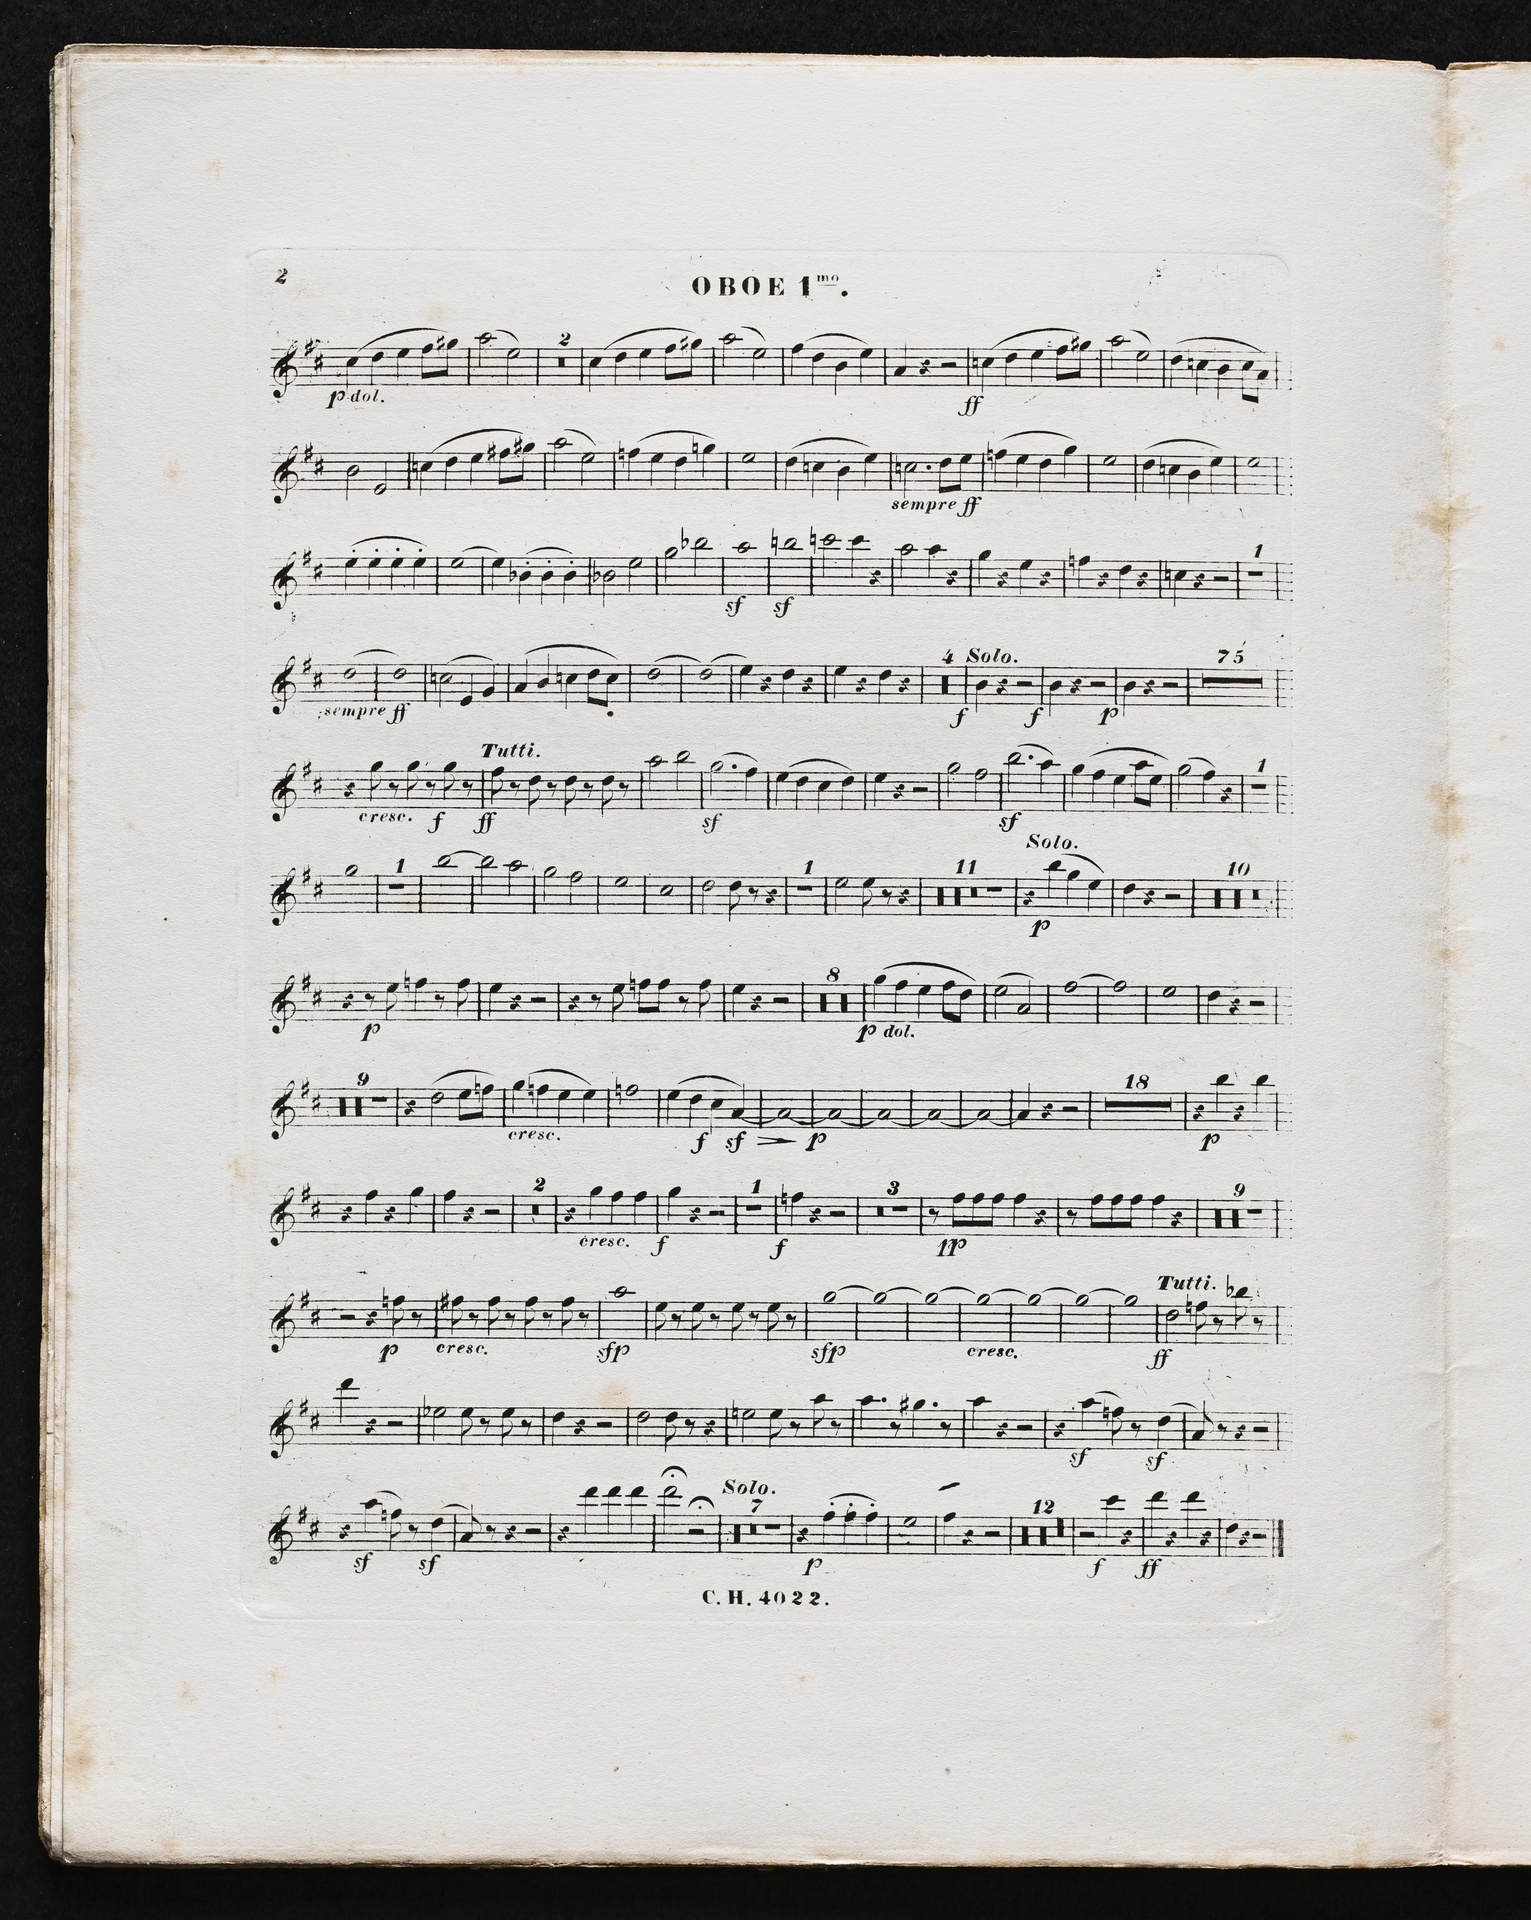 2
OBOE 1mo.
2
p dol. ff
sempre ff
1
sf sf
4 Solo. 75
sempre ff f f p
Tutti. 1
cresc. f ff sf sf
Solo.
1 1 11 10
p
8
p p dol.
9 18
cresc. f sf p p
2 1 3 9
cresc. f f pp
Tutti.
p cresc. sfp sfp cresc. ff
sf sf
Solo.
7 12
sf sf p f ff
C. H. 4022.